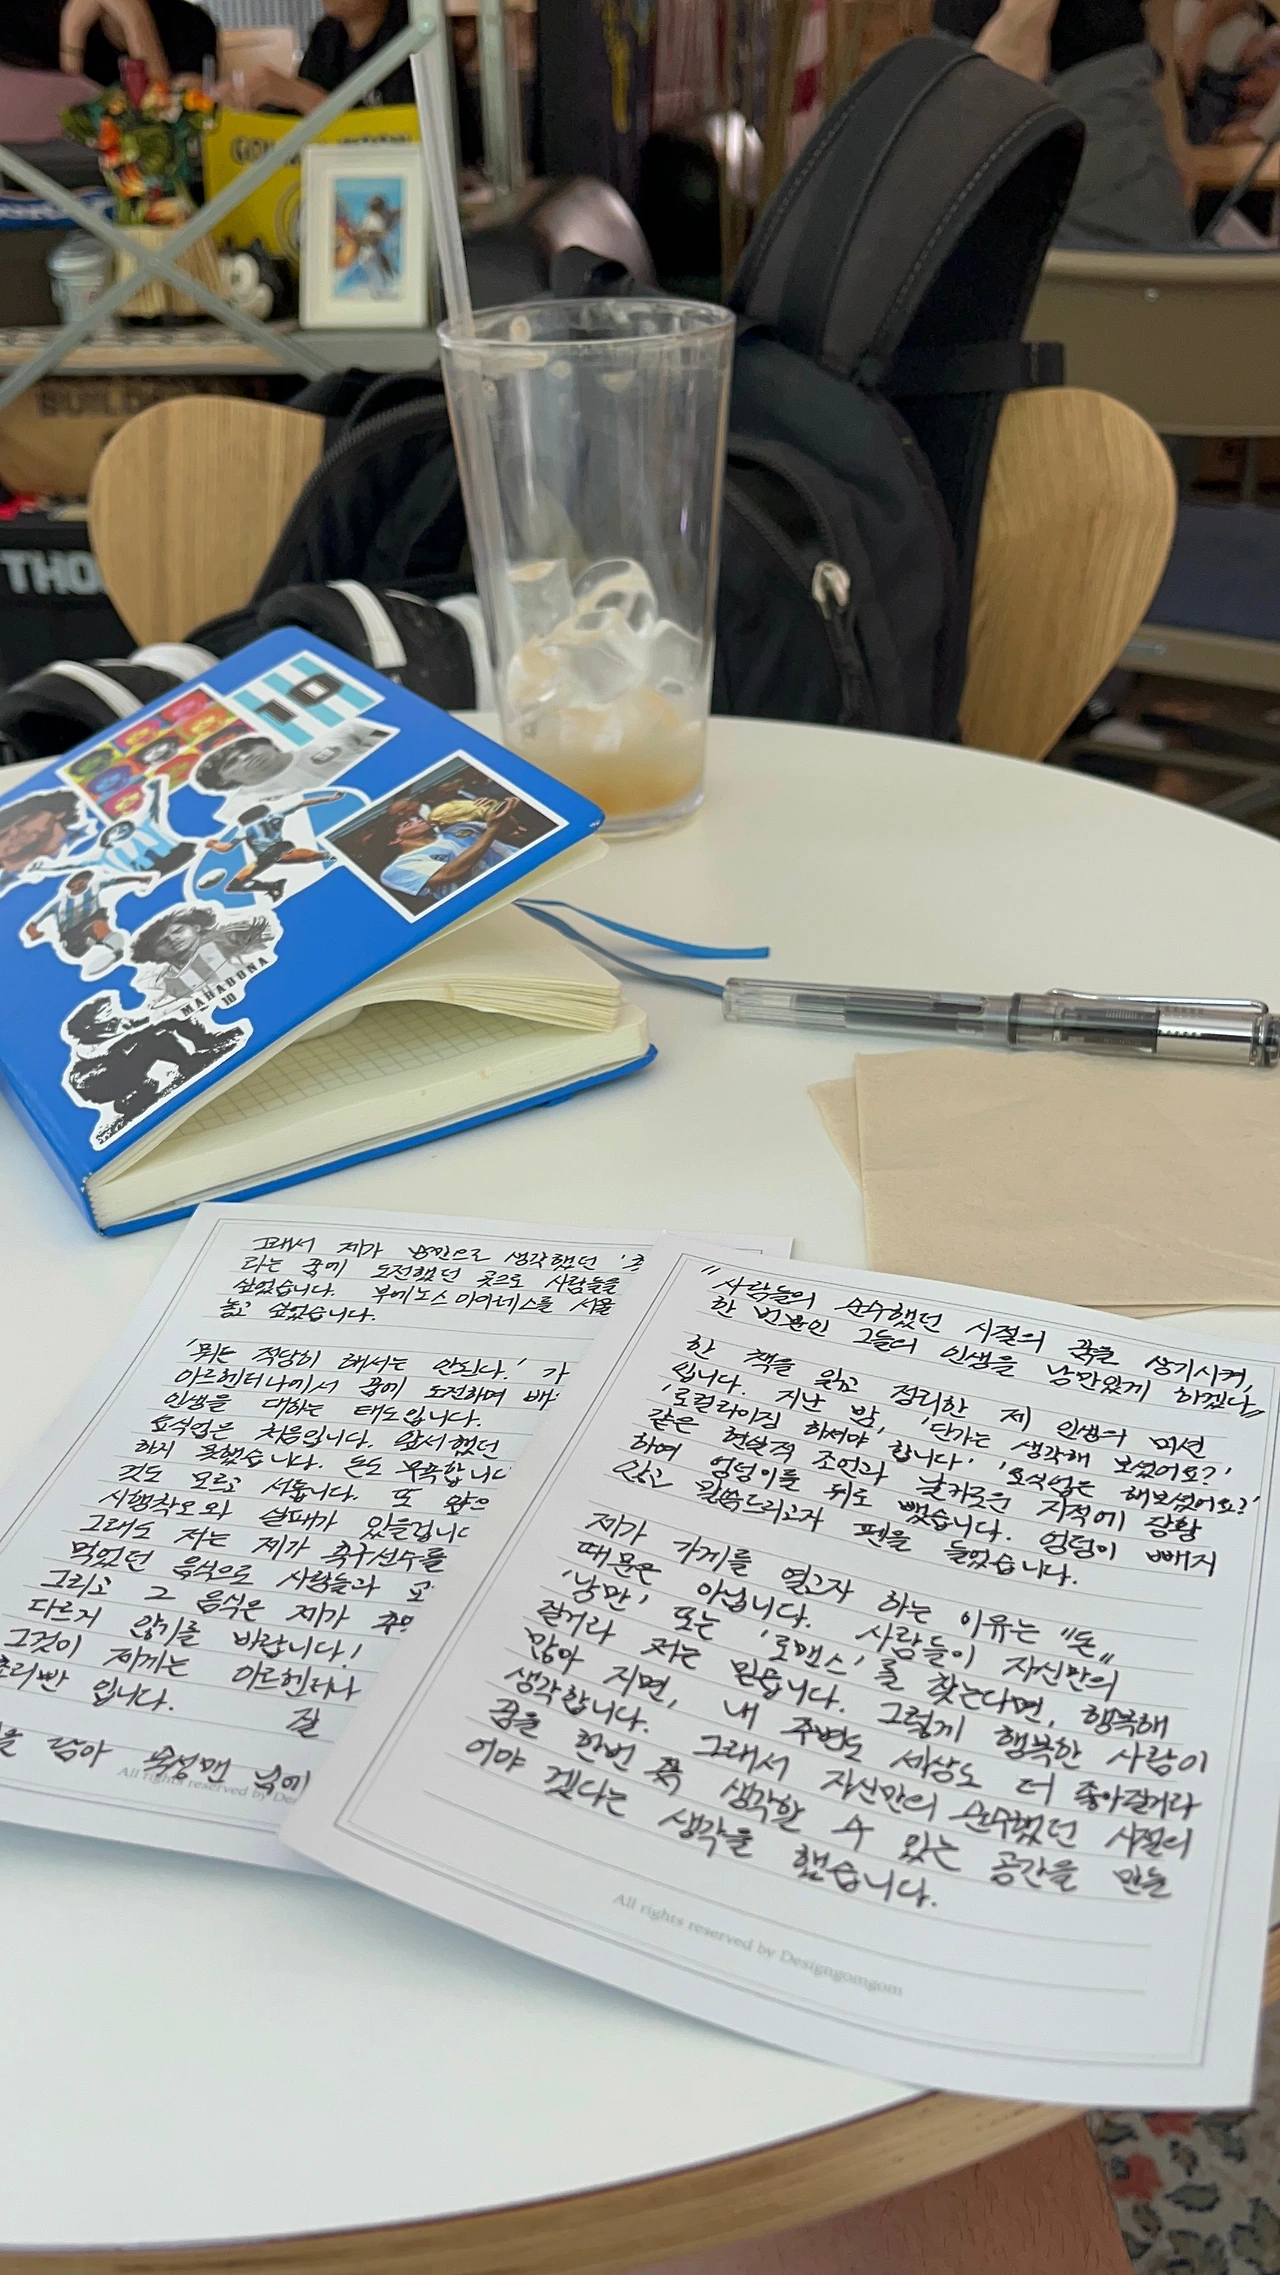 BUILD
THO
10
MARADONA
10
그래서 제가 낭만으로 생각했던 '축
라는 꿈에 도전했던 곳으로 사람들을
싶었습니다. 부에노스 아이레스를 서울
놓고 싶었습니다.
'뭐든 적당히 해서는 안된다.' 가
아르헨티나에서 꿈에 도전하며 배
인생을 대하는 태도입니다.
요식업은 처음입니다. 앞서 했던
하지 못했습니다. 돈도 부족합니다
것도 모르고 서툽니다. 또 많은
시행착오와 실패가 있을겁니다
그래도 저는 제가 축구선수를
먹었던 음식으로 사람들과
그리고 그 음식은 제가
다르게 않기를 바랍니다!
그것이 제게는 아르헨티나
초리빤 입니다.
잘
을 담아 육성맨 님께
All rights reserved by Des
"사람들의 순수했던 시절의 꿈을 상기시켜,
한 번뿐인 그들의 인생을 낭만있게 하겠다"
한 책을 읽고 정리한 제 인생의 미션
입니다. 지난 밤, '단가는 생각해 보셨어요?'
'로컬라이징 하셔야 합니다' '요식업은 해보셨어요?'
같은 현실적 조언과 날카로운 지적에 당황
하여 엉덩이를 뒤로 뺐습니다. 엉덩이 빼지
않고 말씀드리고자 펜을 들었습니다.
제가 가게를 열고자 하는 이유는 "돈"
때문은 아닙니다. 사람들이 자신만의
'낭만' 또는 '로맨스'를 찾는다면, 행복해
질거라 저는 믿습니다. 그렇게 행복한 사람이
많아 지면, 내 주변도 세상도 더 좋아질거라
생각합니다. 그래서 자신만의 순수했던 시절의
꿈을 한번 쯤 생각할 수 있는 공간을 만들
어야 겠다는 생각을 했습니다.
All rights reserved by Designgomgom